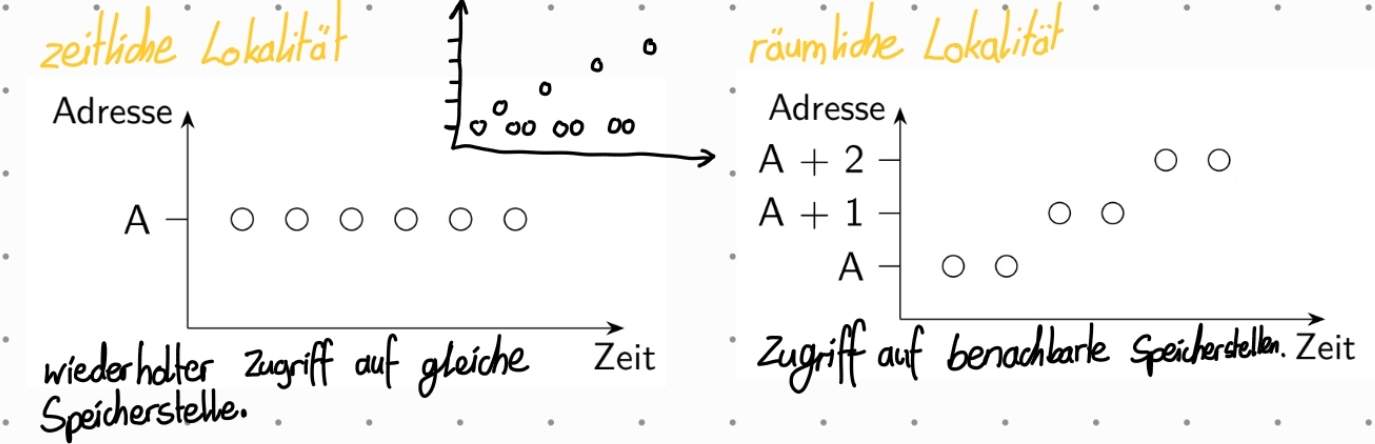 zeitliche Lokalität
Adresse
A
Zeit
wiederholter Zugriff auf gleiche
Speicherstelle.
räumliche Lokalität
Adresse
A + 2
A + 1
A
Zeit
Zugriff auf benachbarte Speicherstellen.